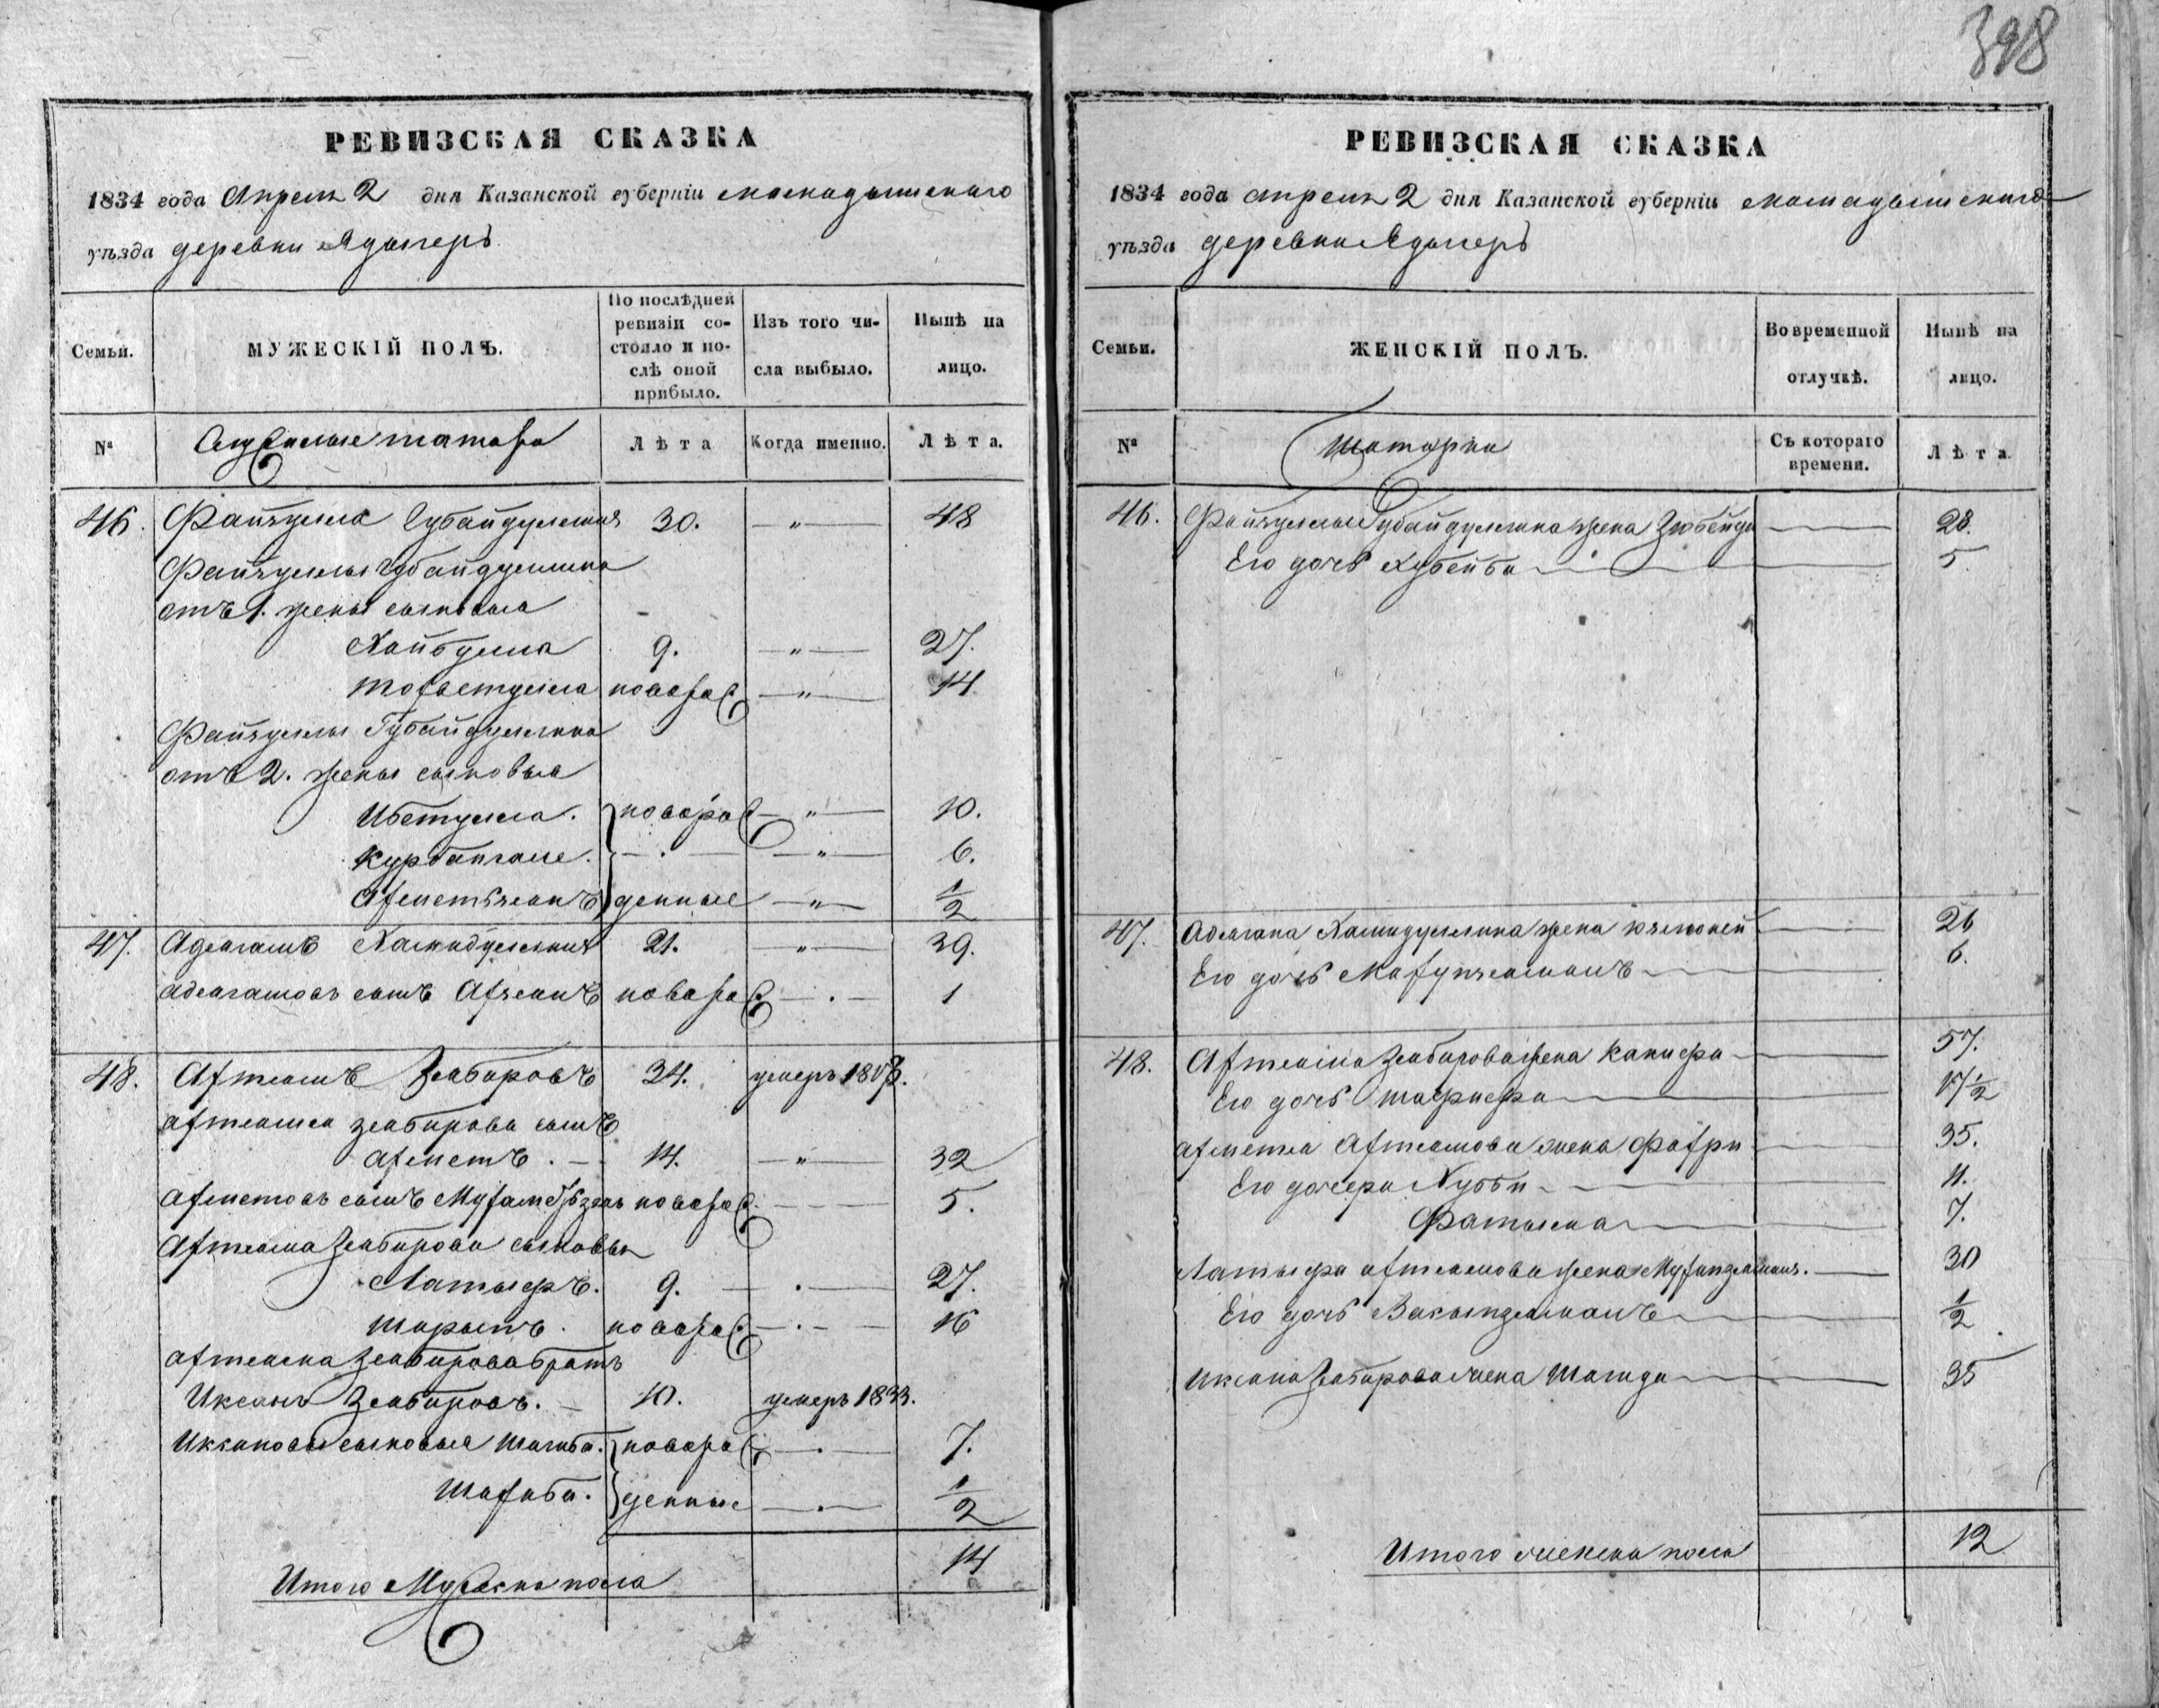 398
РЕВИЗСКАЯ СКАЗКА
1834 года Апреля 2 дня Казанской губерніи мамадышскаго
уѣзда деревни Ядыгерь
Семьи.
МУЖЕСКІЙ ПОЛЪ.
По послѣдней ревизіи состояло и послѣ оной прибыло.
Изъ того числа выбыло.
Нынѣ на лицо.
№
Служилые татара
Лѣта
Когда именно.
Лѣта.
46. Файзулла Губайдуллинъ 30. — " — 48
Файзуллы Губайдуллина
отъ 1. жены сыновья
Хайбулла 9. — " — 27.
новорож — " — 14
Файзуллы Губайдуллина
отъ 2. жены сыновья
Ибетулла. новорож — " — 10.
Курбангале. — . — — " — 6.
Ахметьянъ денные — " — 1/2
47. Адельгашъ Хамидуллинъ 21. — " — 39.
адельгашовъ сынъ Ахсанъ новорож — . — 1
48. Ахтямъ Зябировъ 34. умеръ 18
ахтяма зябирова сынъ
ахметъ. — 14. — " — 32
ахметовъ сынъ новорож — 5.
Ахтяма Зябирова сыновья
Латыфъ. 9. — . — 27.
Шарыпъ. новорож — . — 16
ахтяма Зябирова братъ
Иксанъ Зябировъ. — 10. умеръ 1833.
Иксановы сыновья Шагиба. новорож — . — 7.
Шахаба. денные — . — 1/2
Итого Мужска пола 14
РЕВИЗСКАЯ СКАЗКА
1834 года апреля 2 дня Казанской губерніи мамадышскаго
уѣзда деревни Ядыгерь
Семьи.
ЖЕНСКІЙ ПОЛЪ.
Во временной отлучкѣ.
Нынѣ на лицо.
№
Татарки
Съ котораго времени.
Лѣта
46. Файзуллы Губайдуллина жена Зюбейда — 28.
Его дочь Хубейба — 5
47. Хамидуллина жена — 26
Его дочь — 6.
48. Ахтяма Зябирова жена Канифа — 57.
Его дочь Шарифа — 17 1/2
ахмета Ахтямова жена Фахри — 35.
Его дочери Хубби — 11.
Фатыма — 7.
Латыфа ахтямова жена — 30
Его дочь — 1/2
Иксана Зябирова жена Шагида — 35
Итого женска пола 12